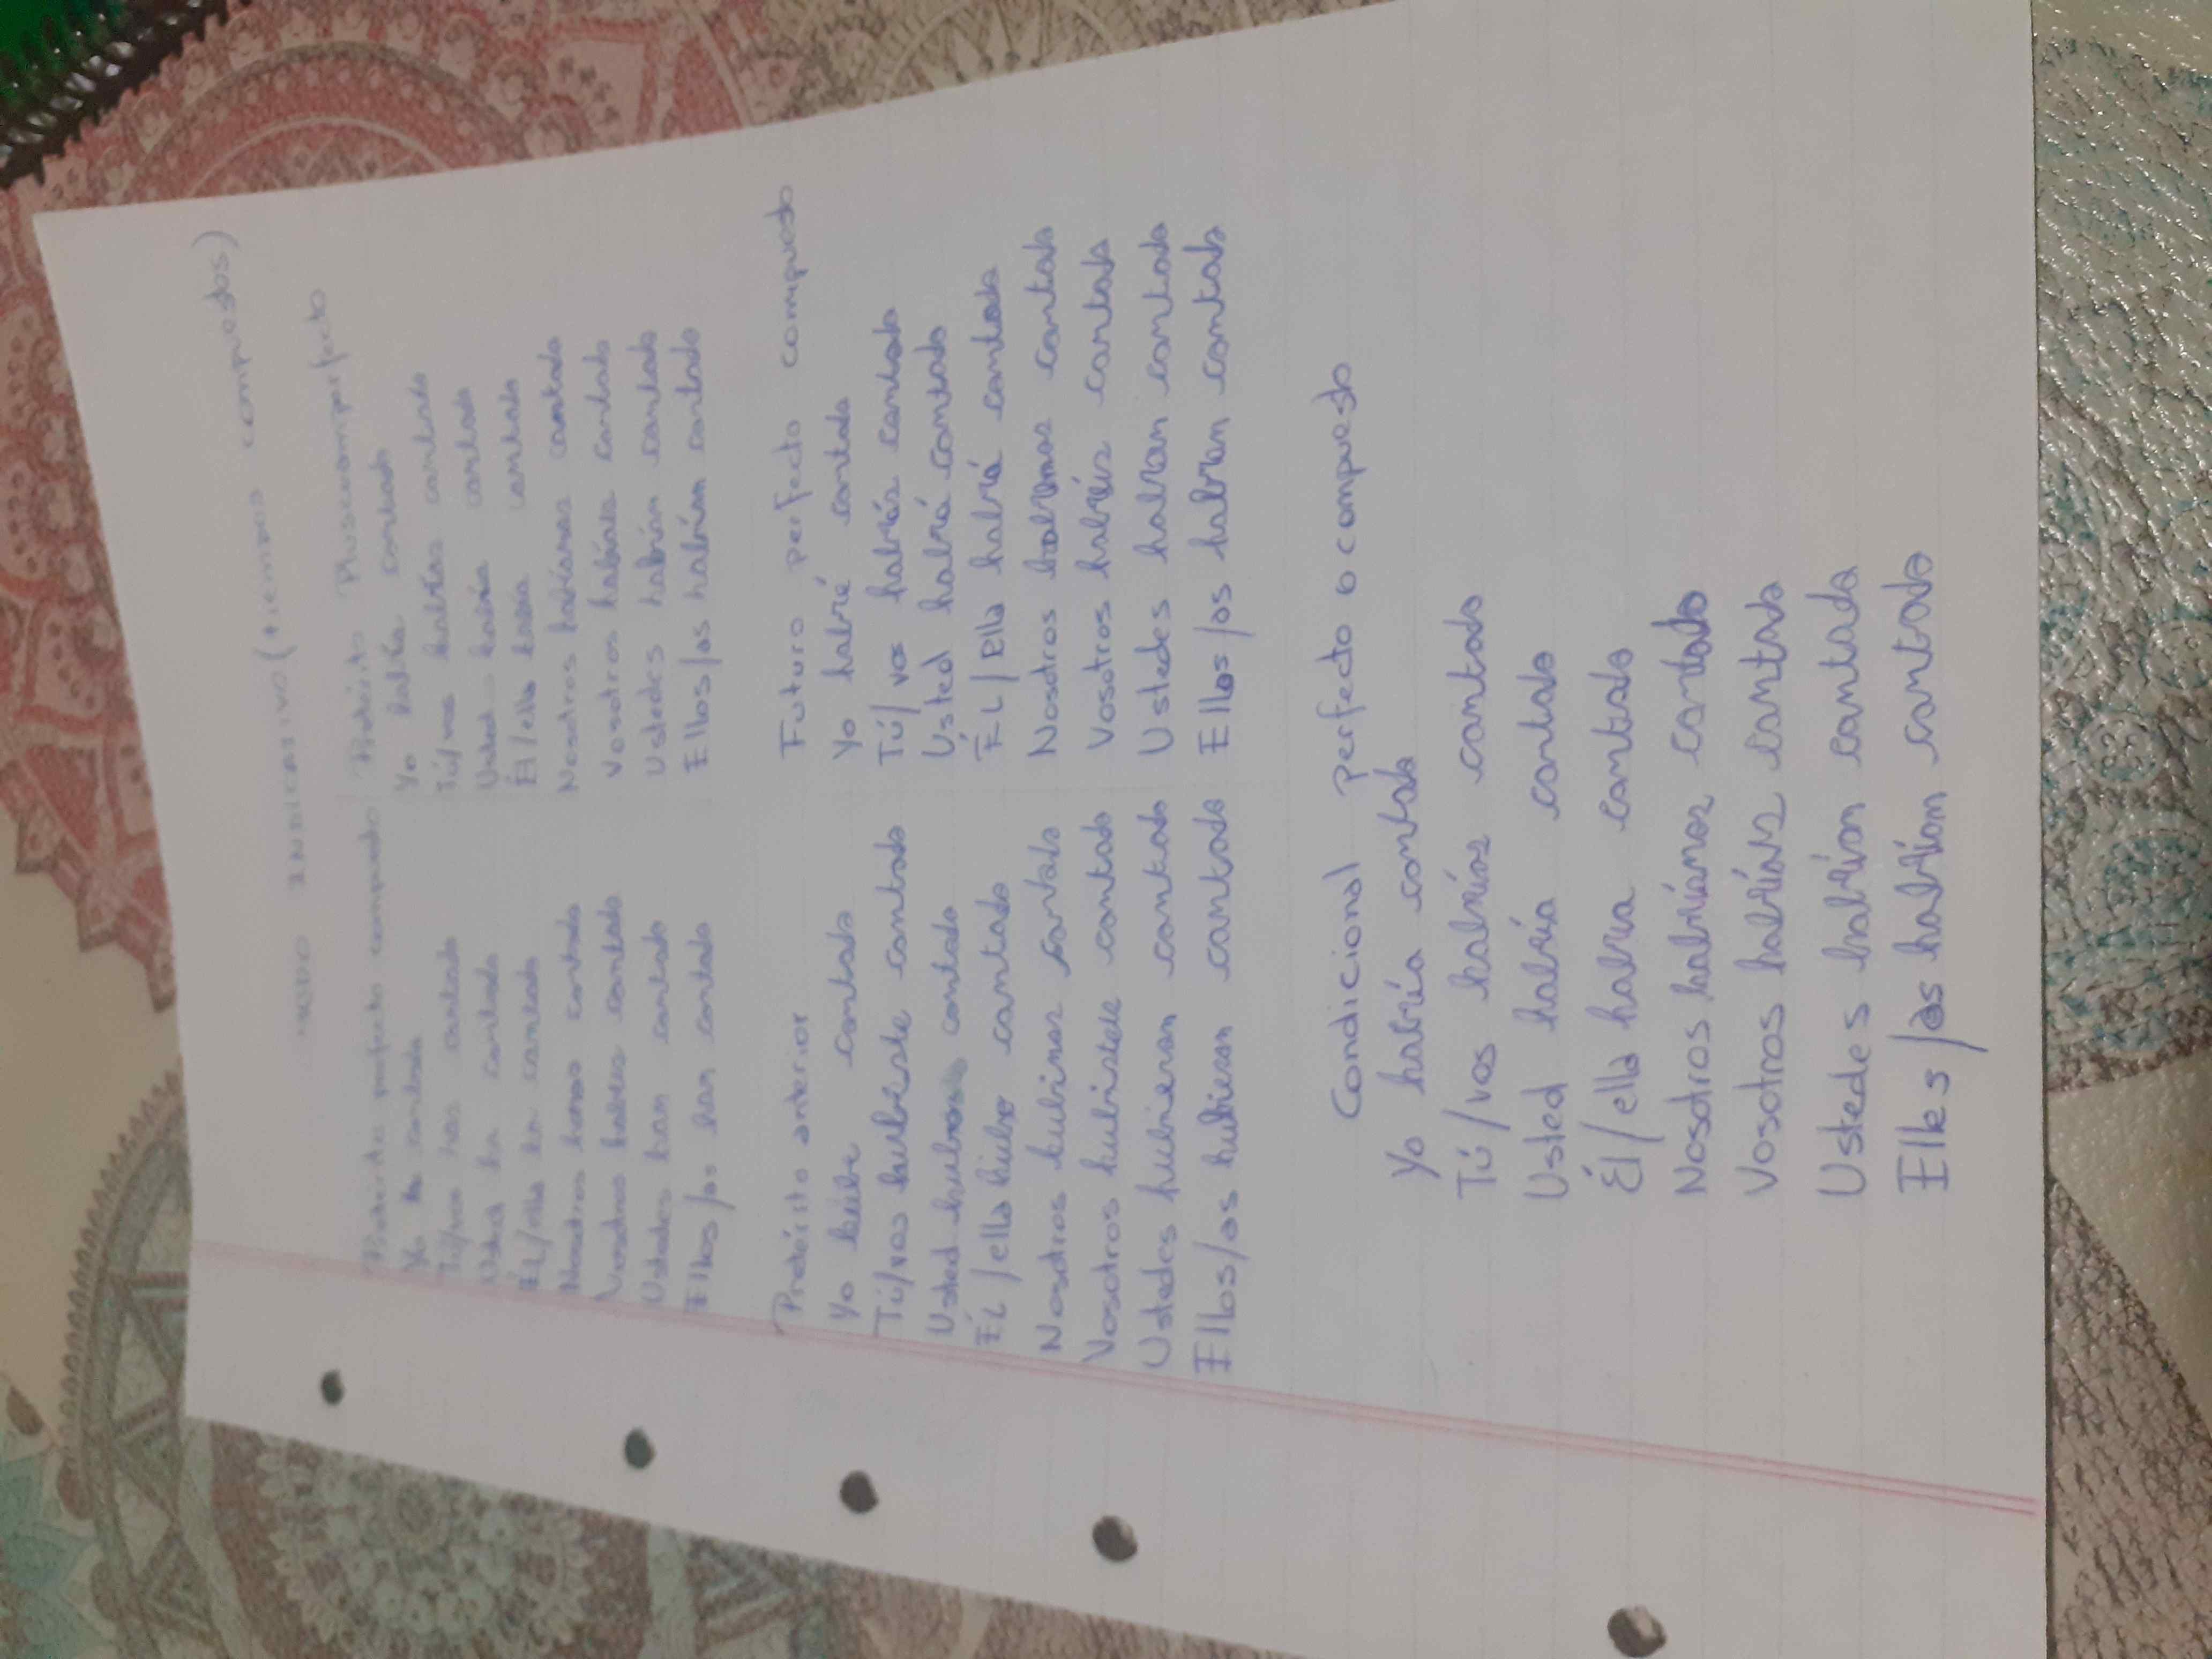 MODO INDICATIVO (tiempos compuestos)
Pretérito perfecto compuesto
Yo he cantado
Tú/vos has cantado
Usted ha cantado
ÉL/ella ha cantado
Nosotros hemos cantado
Vosotros habéis cantado
Ustedes han cantado
Ellos/as han cantado
Pretérito Pluscuamperfecto
Yo había cantado
Tú/vos habías cantado
Usted había cantado
Él/ella había cantado
Nosotros habíamos cantado
Vosotros habíais cantado
Ustedes habían cantado
Ellos/as habían cantado
Pretérito anterior
Yo hube cantado
Tú/vos hubiste cantado
Usted hubo cantado
ÉL/ella hubo cantado
Nosotros hubimos cantado
Vosotros hubisteis cantado
Ustedes hubieron cantado
Ellos/as hubieron cantado
Futuro perfecto compuesto
Yo habré cantado
Tú/vos habrás cantado
Usted habrá cantado
ÉL/Ella habrá cantado
Nosotros habremos cantado
Vosotros habréis cantado
Ustedes habran cantado
Ellos/as habran cantado
Condicional perfecto o compuesto
Yo habría cantado
Tú/vos habrías cantado
Usted habría cantado
Él/ella habria cantado
Nosotros habríamos cantado
Vosotros habríais cantado
Ustedes habrían cantado
Ellos/as habrían cantado